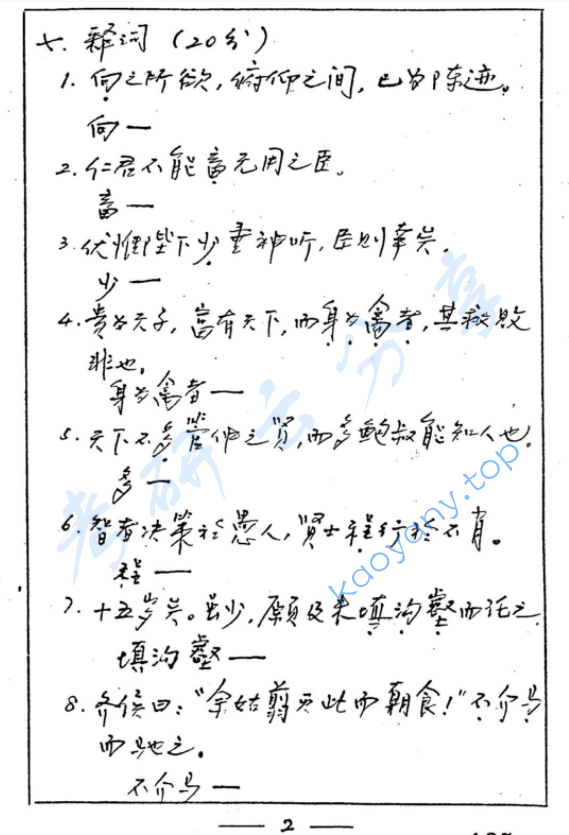 七. 释词（20分）
1. 向之所欲，俯仰之间，已为陈迹。
向—
2. 仁君不能畜无用之臣。
畜—
3. 伏惟陛下少垂神听，臣则幸矣.
少—
4. 贵为天子，富有天下，而身为禽者，其救败
非也。
身为禽者—
5. 天下不多管仲之贤，而多鲍叔能知人也.
多—
6. 智者决策於愚人，贤士程行於不肖。
程—
7. 十五岁矣。虽少，愿及未填沟壑而托之.
填沟壑—
8. 齐侯曰："余姑翦灭此而朝食！"不介马
而驰之。
不介马—
— 2 —
考研云分享
kaoyany.top